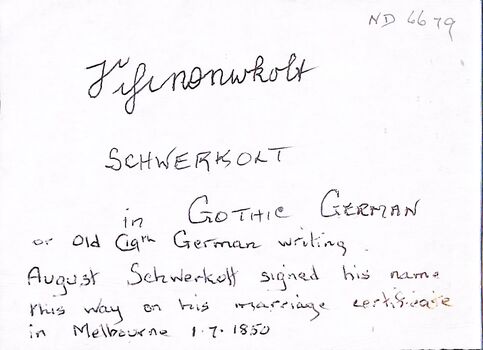 ND 6679
Schwerkolt
SCHWERKOLT
in GOTHIC GERMAN
or Old 19th German writing.
August Schwerkolt signed his name
this way on his marriage certificate
in Melbourne 1.7.1850